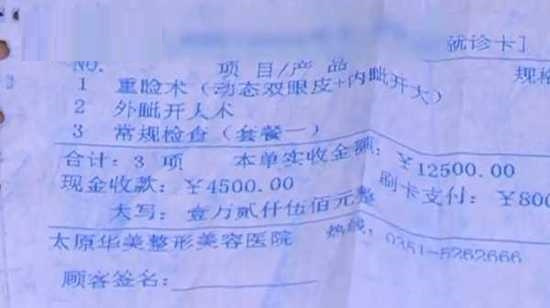 就诊卡]
NO. 项目/产品 规检
1 重睑术（动态双眼皮+内眦开大）
2 外眦开大术
3 常规检查（套餐一）
合计：3 项 本单实收金额：¥12500.00
现金收款：¥4500.00 刷卡支付：¥800
大写：壹万贰仟伍佰元整
太原华美整形美容医院 热线：0351-5262666
顾客签名：